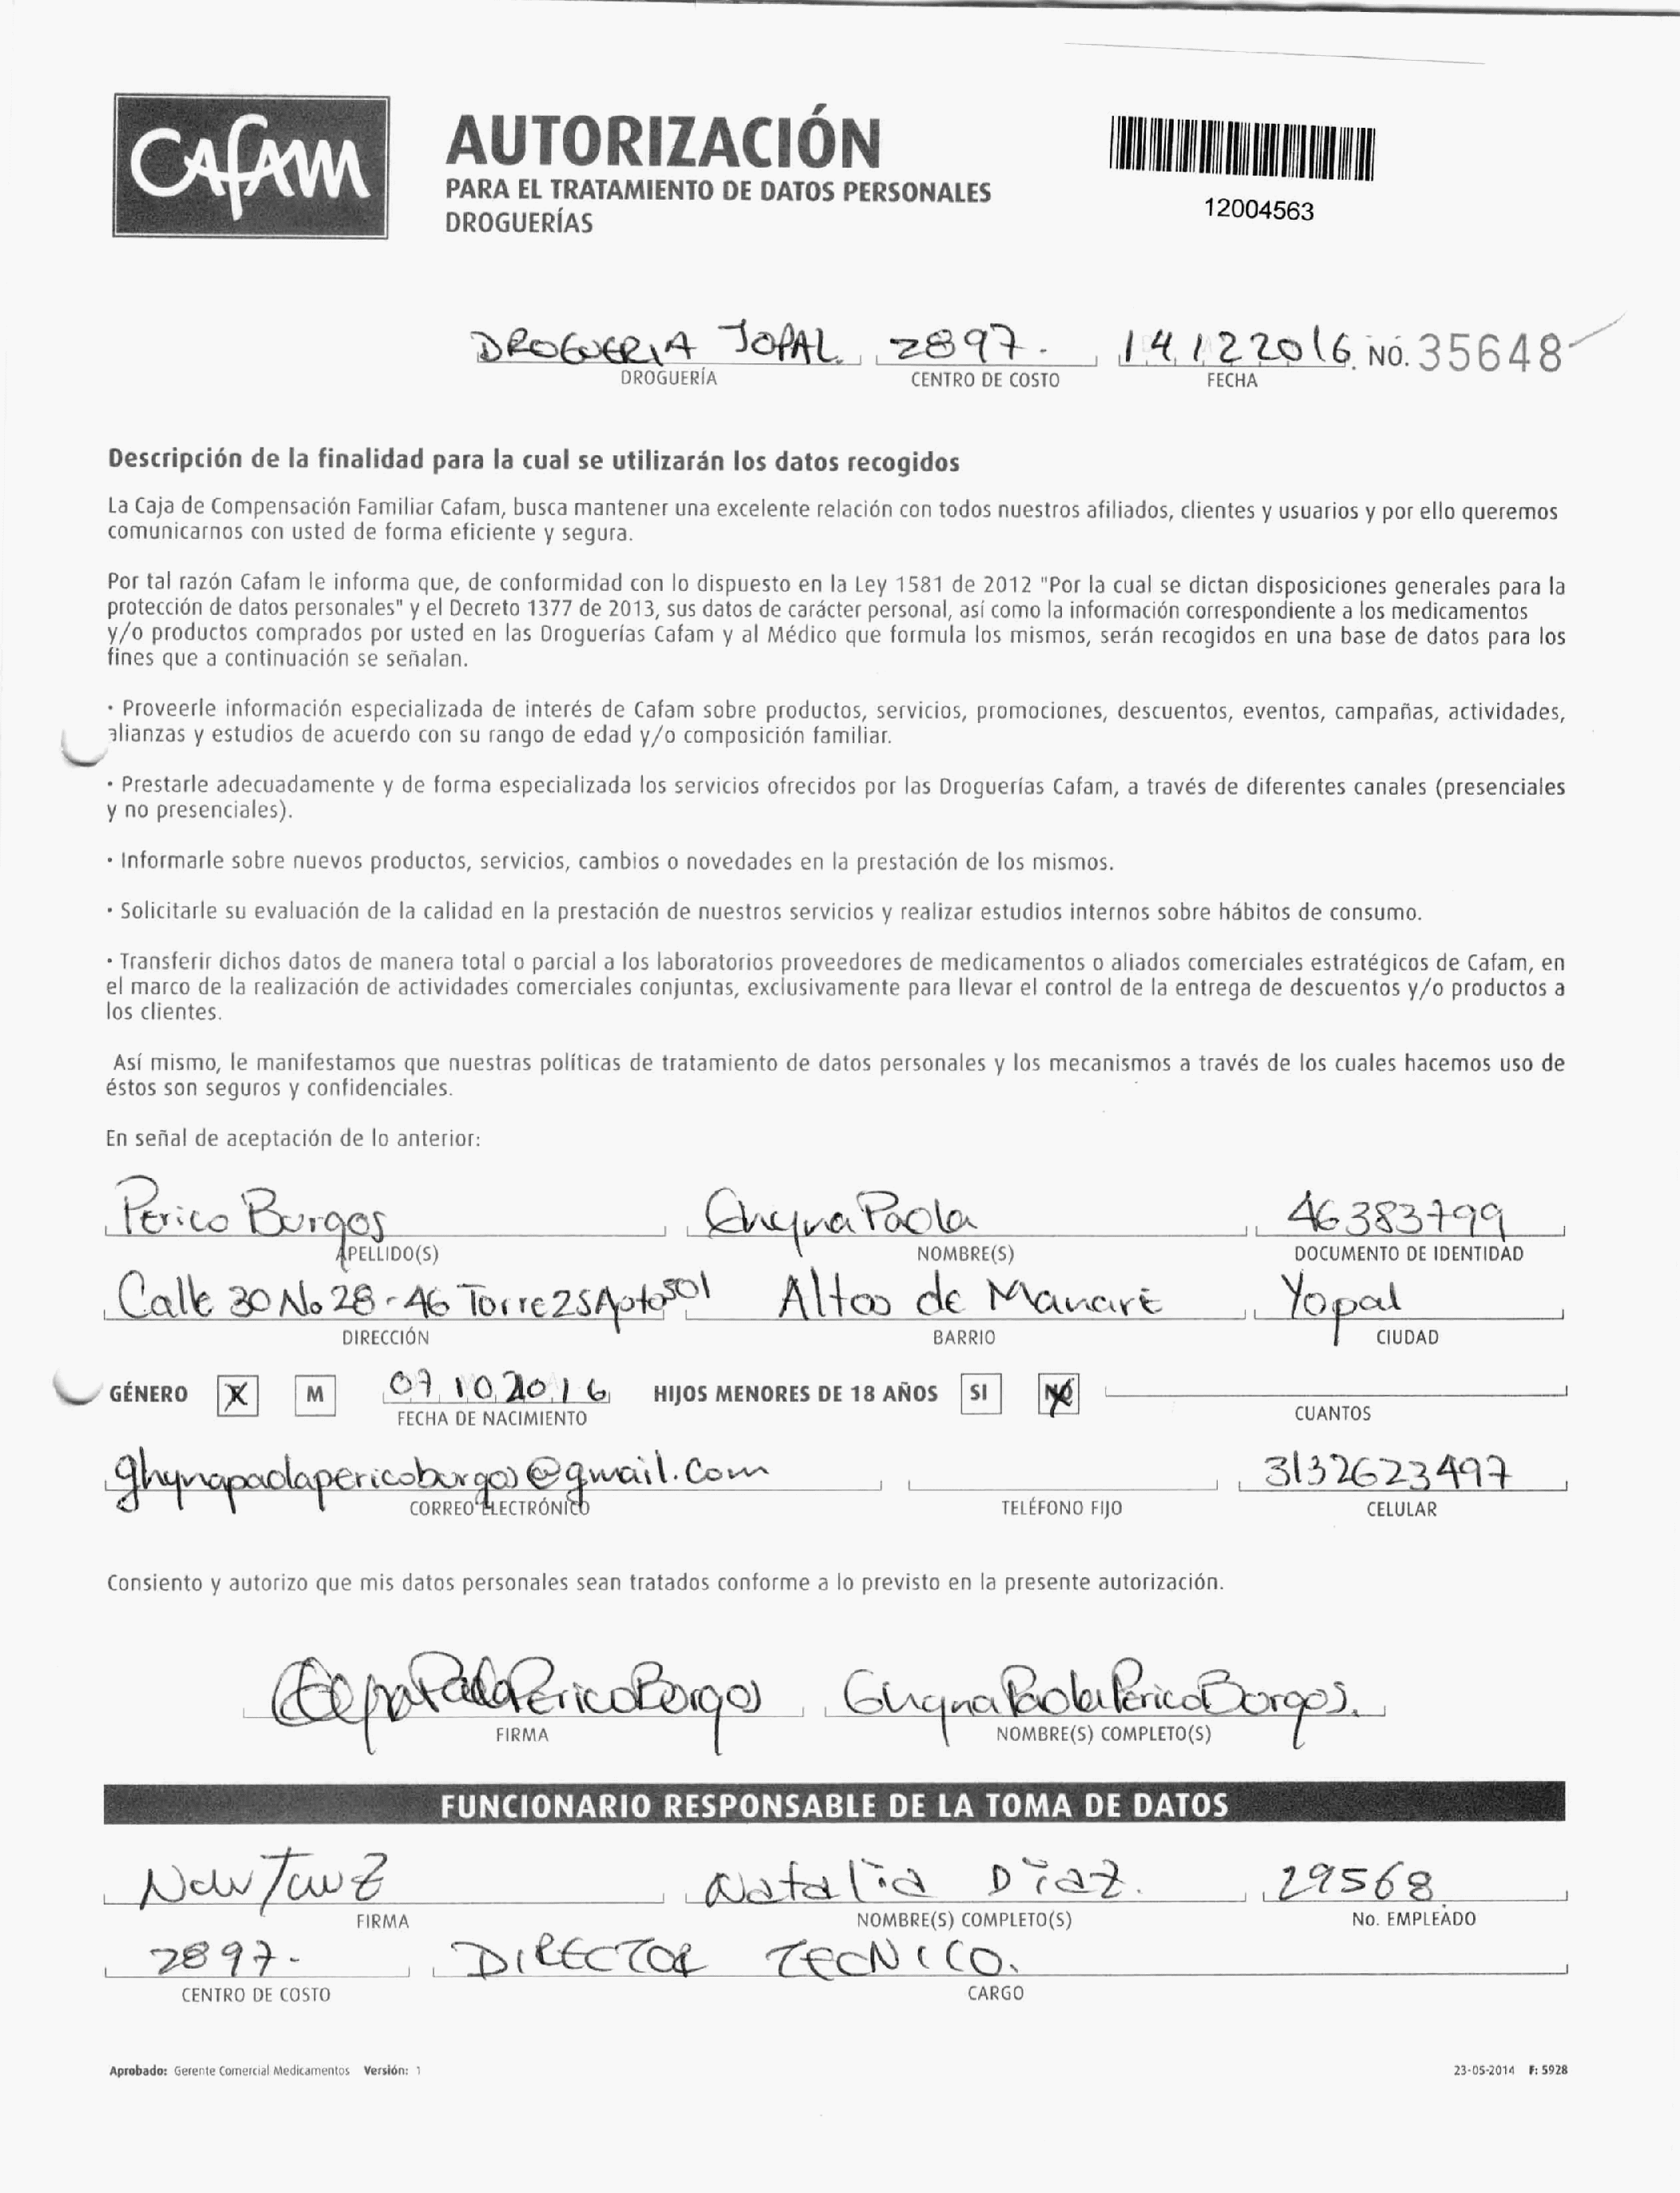 Cafam
AUTORIZACIÓN
PARA EL TRATAMIENTO DE DATOS PERSONALES
DROGUERÍAS
12004563
DROGUERIA YOPAL 2897. 14 12 2016. NO. 35648
DROGUERÍA CENTRO DE COSTO FECHA
Descripción de la finalidad para la cual se utilizarán los datos recogidos
La Caja de Compensación Familiar Cafam, busca mantener una excelente relación con todos nuestros afiliados, clientes y usuarios y por ello queremos
comunicarnos con usted de forma eficiente y segura.
Por tal razón Cafam le informa que, de conformidad con lo dispuesto en la Ley 1581 de 2012 "Por la cual se dictan disposiciones generales para la
protección de datos personales" y el Decreto 1377 de 2013, sus datos de carácter personal, así como la información correspondiente a los medicamentos
y/o productos comprados por usted en las Droguerías Cafam y al Médico que formula los mismos, serán recogidos en una base de datos para los
fines que a continuación se señalan.
· Proveerle información especializada de interés de Cafam sobre productos, servicios, promociones, descuentos, eventos, campañas, actividades,
alianzas y estudios de acuerdo con su rango de edad y/o composición familiar.
· Prestarle adecuadamente y de forma especializada los servicios ofrecidos por las Droguerías Cafam, a través de diferentes canales (presenciales
y no presenciales).
· Informarle sobre nuevos productos, servicios, cambios o novedades en la prestación de los mismos.
· Solicitarle su evaluación de la calidad en la prestación de nuestros servicios y realizar estudios internos sobre hábitos de consumo.
· Transferir dichos datos de manera total o parcial a los laboratorios proveedores de medicamentos o aliados comerciales estratégicos de Cafam, en
el marco de la realización de actividades comerciales conjuntas, exclusivamente para llevar el control de la entrega de descuentos y/o productos a
los clientes.
Así mismo, le manifestamos que nuestras políticas de tratamiento de datos personales y los mecanismos a través de los cuales hacemos uso de
éstos son seguros y confidenciales.
En señal de aceptación de lo anterior:
Perico Burgos Ghyna Paola 46383799
APELLIDO(S) NOMBRE(S) DOCUMENTO DE IDENTIDAD
Calle 30 No 28-46 Torre 25 Apto 501 Altos de Manare Yopal
DIRECCIÓN BARRIO CIUDAD
GÉNERO X M 07 10 2016 HIJOS MENORES DE 18 AÑOS SI NO
FECHA DE NACIMIENTO CUANTOS
ghynapaolapericoburgos@gmail.com 3132623497
CORREO ELECTRÓNICO TELÉFONO FIJO CELULAR
Consiento y autorizo que mis datos personales sean tratados conforme a lo previsto en la presente autorización.
Ghyna Paola Perico Borgos Ghyna Paola Perico Borgos.
FIRMA NOMBRE(S) COMPLETO(S)
FUNCIONARIO RESPONSABLE DE LA TOMA DE DATOS
Natalia Díaz. 29568
FIRMA NOMBRE(S) COMPLETO(S) No. EMPLEADO
2897. DIRECTOR TECNICO.
CENTRO DE COSTO CARGO
Aprobado: Gerente Comercial Medicamentos Versión: 1 23-05-2014 F: 5928